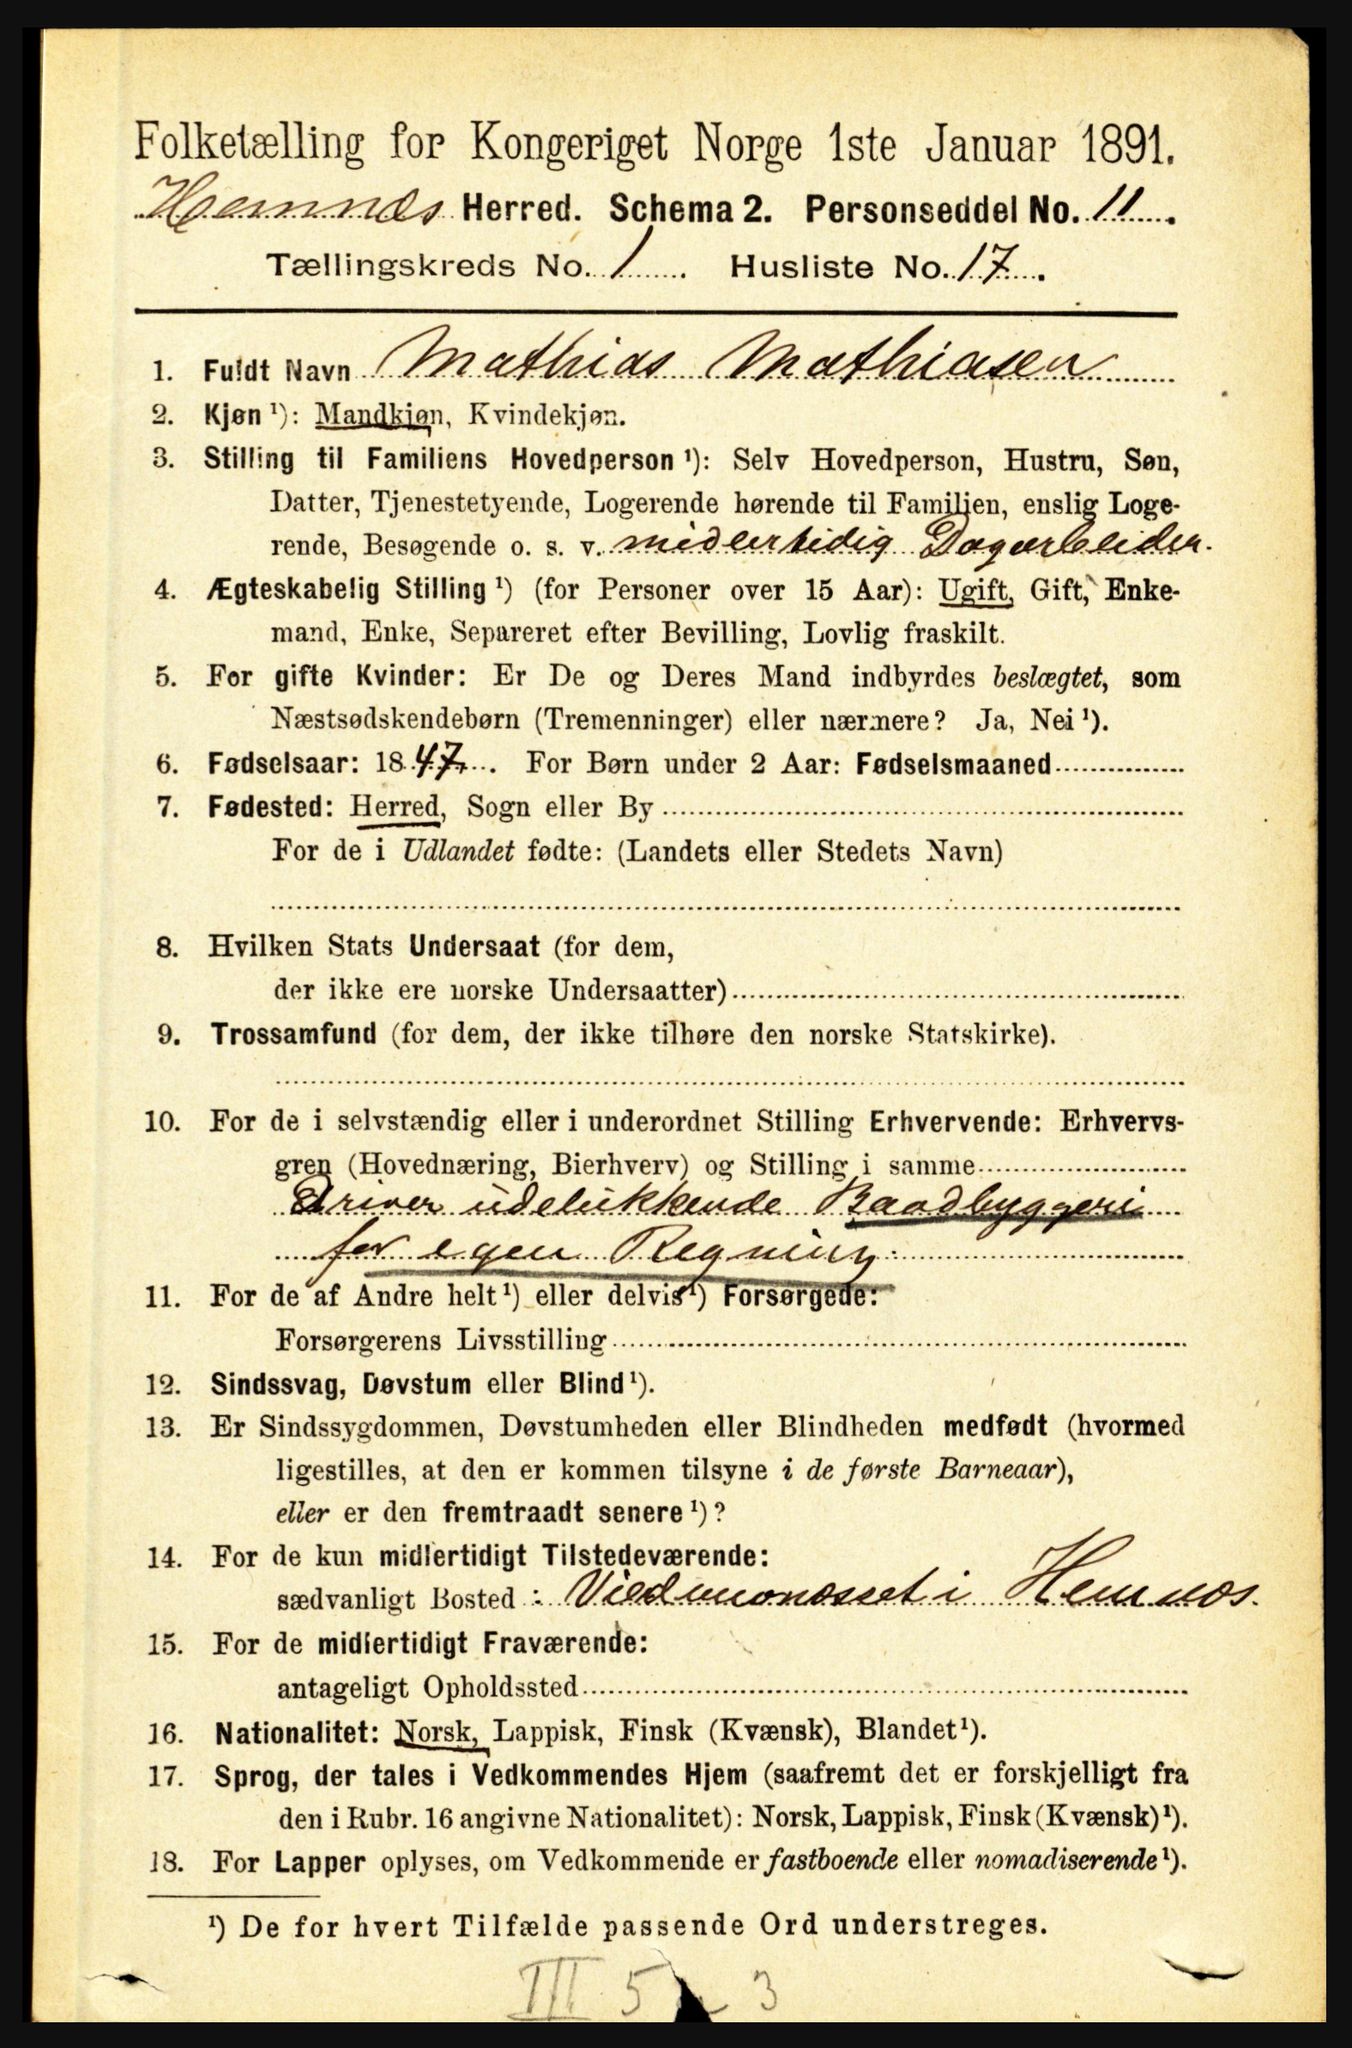 Folketælling for Kongeriget Norge 1ste Januar 1891.
Hemnæs Herred. Schema 2. Personseddel No. 11.
Tællingskreds No. 1. Husliste No. 17.
1. Fuldt Navn Mathias Mathiasen
2. Kjøn ¹): Mandkjøn, Kvindekjøn.
3. Stilling til Familiens Hovedperson ¹): Selv Hovedperson, Hustru, Søn,
Datter, Tjenestetyende, Logerende hørende til Familien, enslig Loge-
rende, Besøgende o. s. v. midlertidig Dagarbeider.
4. Ægteskabelig Stilling ¹) (for Personer over 15 Aar): Ugift, Gift, Enke-
mand, Enke, Separeret efter Bevilling, Lovlig fraskilt.
5. For gifte Kvinder: Er De og Deres Mand indbyrdes beslægtet, som
Næstsødskendebørn (Tremenninger) eller nærmere? Ja, Nei ¹).
6. Fødselsaar: 1847. For Børn under 2 Aar: Fødselsmaaned
7. Fødested: Herred, Sogn eller By
For de i Udlandet fødte: (Landets eller Stedets Navn)
8. Hvilken Stats Undersaat (for dem,
der ikke ere norske Undersaatter)
9. Trossamfund (for dem, der ikke tilhøre den norske Statskirke).
10. For de i selvstændig eller i underordnet Stilling Erhvervende: Erhvervs-
gren (Hovednæring, Bierhverv) og Stilling i samme
driver udelukkende Baadbyggeri
for egen Regning.
11. For de af Andre helt ¹) eller delvis ¹) Forsørgede:
Forsørgerens Livsstilling
12. Sindssvag, Døvstum eller Blind ¹).
13. Er Sindssygdommen, Døvstumheden eller Blindheden medfødt (hvormed
ligestilles, at den er kommen tilsyne i de første Barneaar),
eller er den fremtraadt senere ¹)?
14. For de kun midlertidigt Tilstedeværende:
sædvanligt Bosted : i Hemnæs.
15. For de midlertidigt Fraværende:
antageligt Opholdssted
16. Nationalitet: Norsk, Lappisk, Finsk (Kvænsk), Blandet ¹).
17. Sprog, der tales i Vedkommendes Hjem (saafremt det er forskjelligt fra
den i Rubr. 16 angivne Nationalitet): Norsk, Lappisk, Finsk (Kvænsk) ¹).
18. For Lapper oplyses, om Vedkommende er fastboende eller nomadiserende ¹).
¹) De for hvert Tilfælde passende Ord understreges.
III 5 3